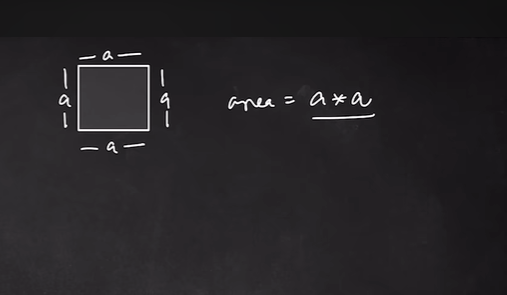 — a —
| a |
| a |
— a —
area = a * a